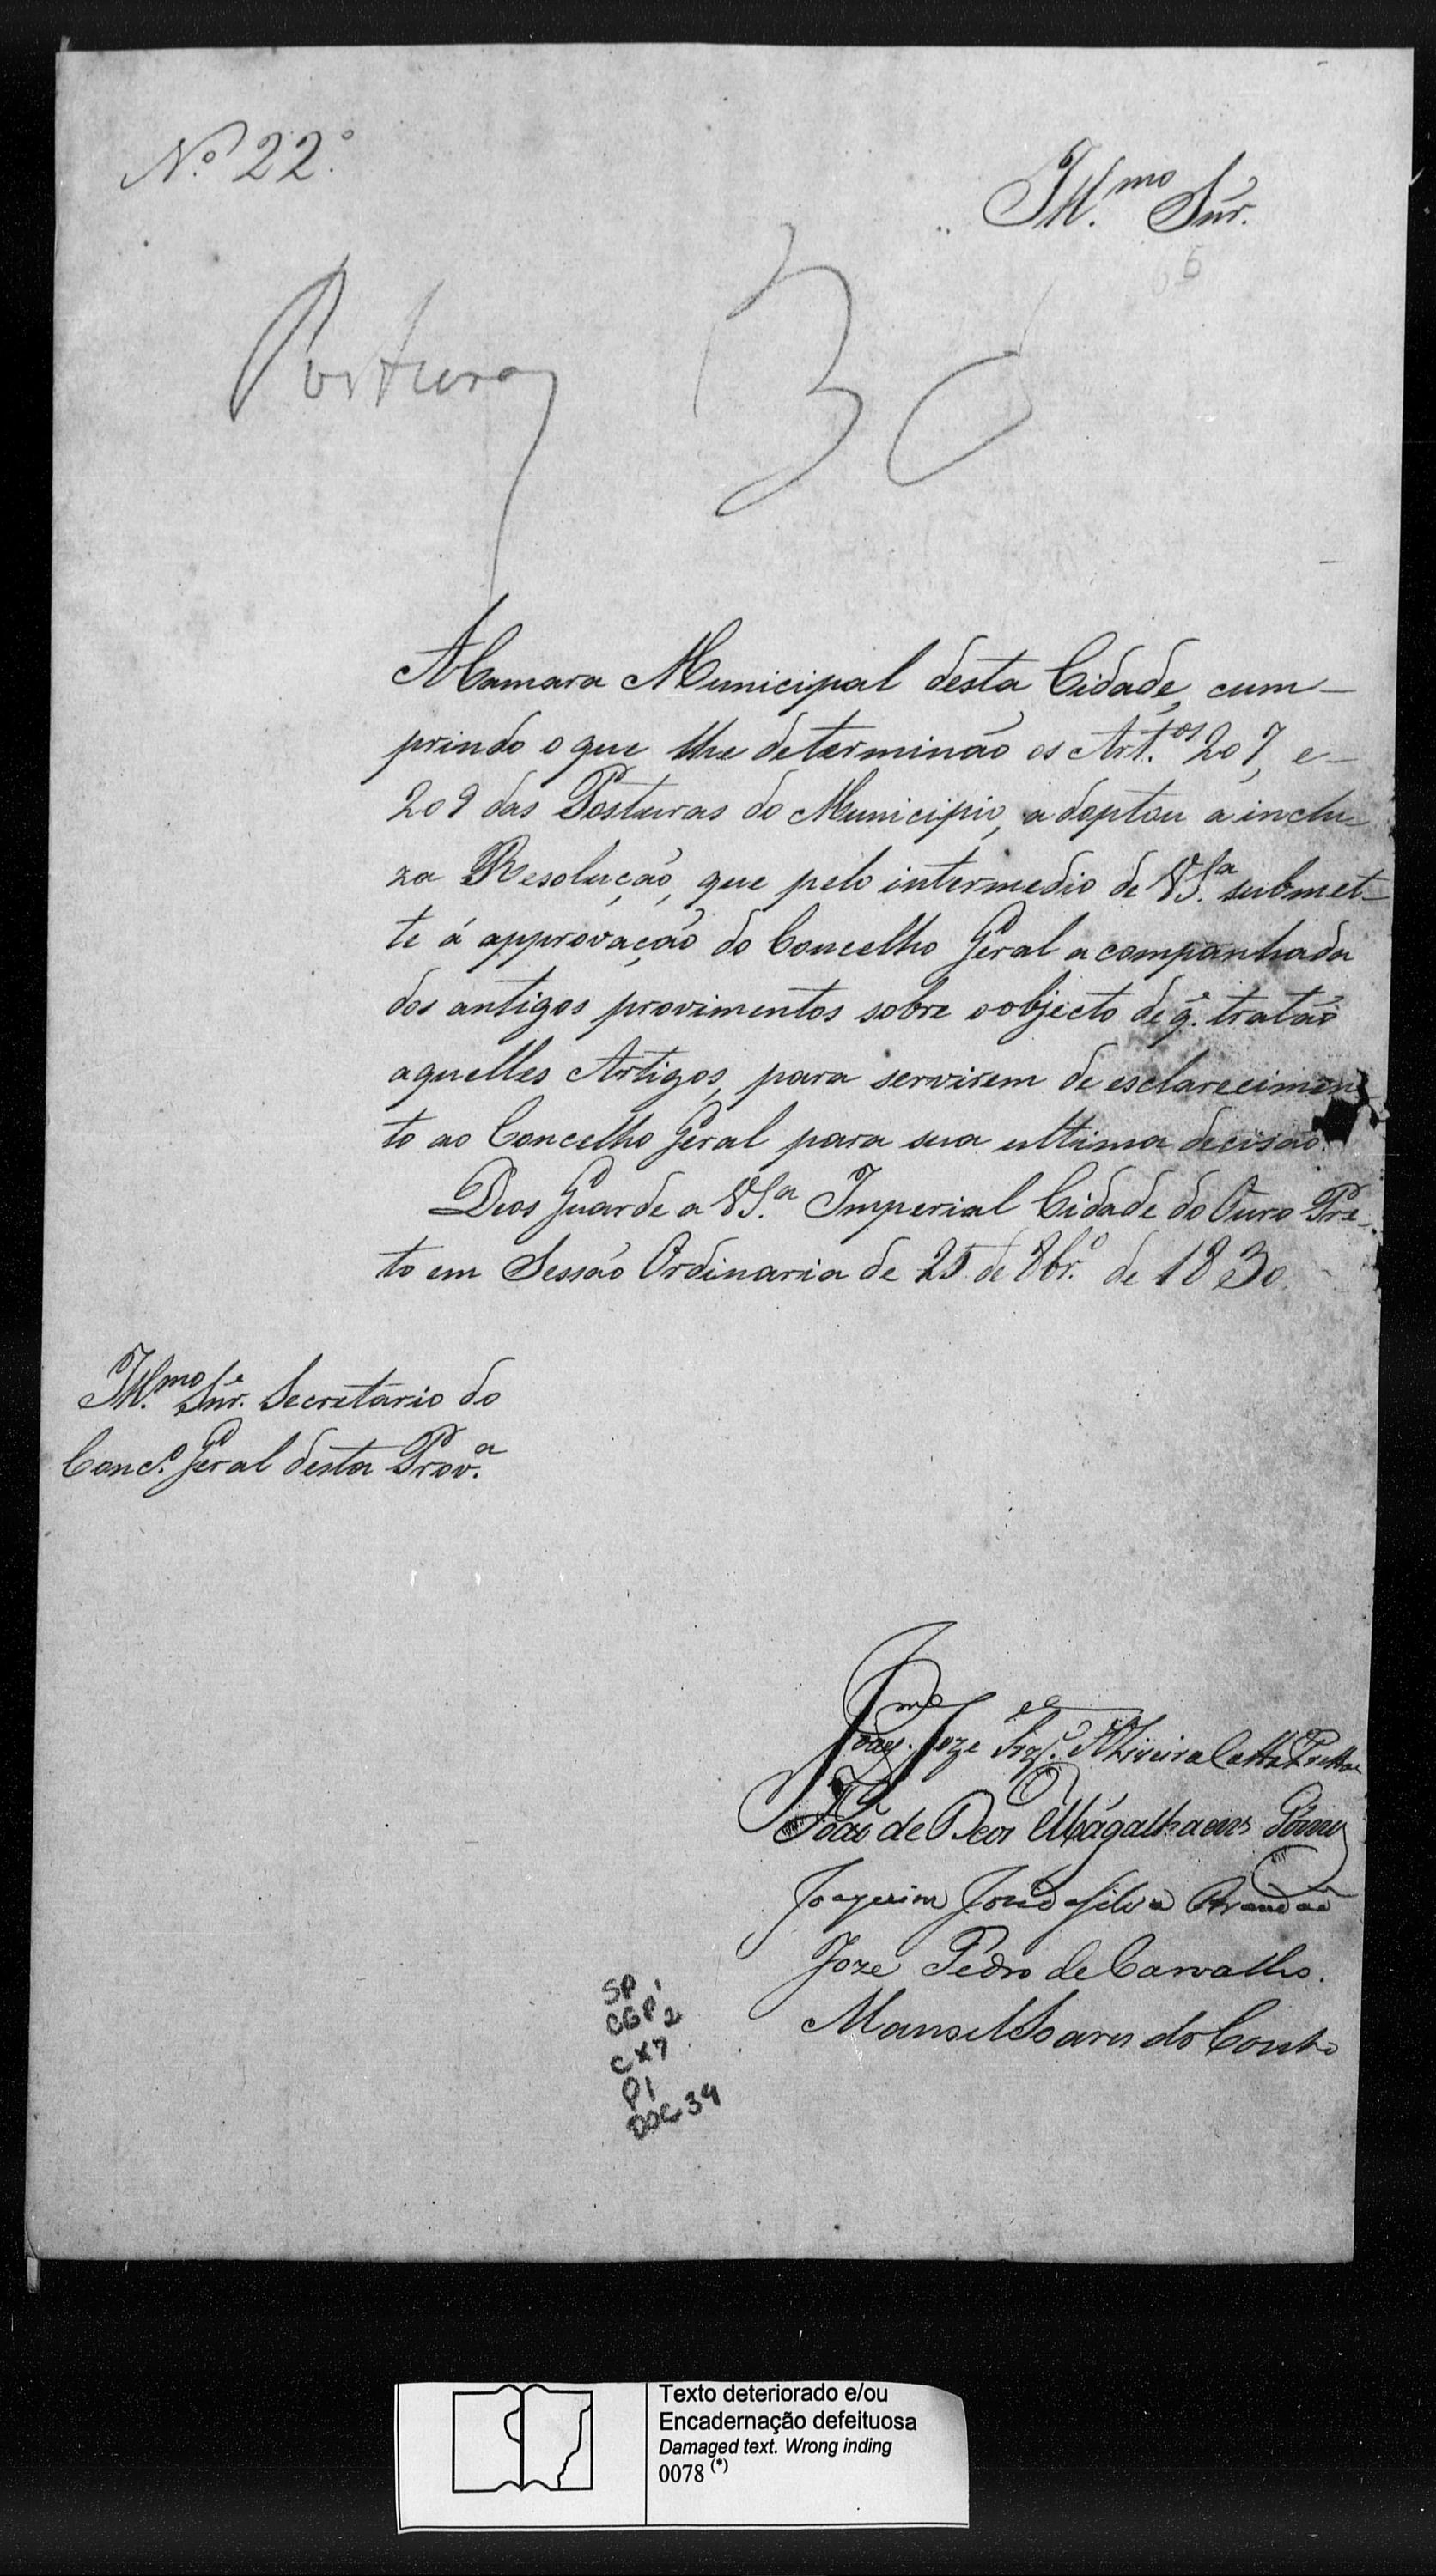 N.º 22.º
Ill.mo Snr.
6
Posturas 30
A Camara Municipal desta Cidade, cum-
prindo o que lhe determinão os Art.os 207, e
209 das Posturas do Municipio, adoptou a inclu-
za Resolução, que pelo intermedio de V.S.ª submet-
te á approvação do Concelho Geral acompanhada
dos antigos provimentos sobre o objecto de q. tratão
aquelles Artigos, para servirem de esclarecimen-
to ao Concelho Geral para sua ultima decisão.
Deos Guarde a V.S.ª Imperial Cidade do Ouro Pre-
to em Sessão Ordinaria de 25 de 8br.º de 1830.
Ill.mo Snr. Secretario do
Conc.º Geral desta Prov.ª
Joaq.m Joze Oliveira Catta Pretta
João de Deos Magalhaens Gomes
Joaquim José da Silva Brandão
Joze Pedro de Carvalho.
Manoel Soares do Couto
SP 1
CGP 2
CX7
P1
DOC 34
Texto deteriorado e/ou
Encadernação defeituosa
Damaged text. Wrong inding
0078 (*)